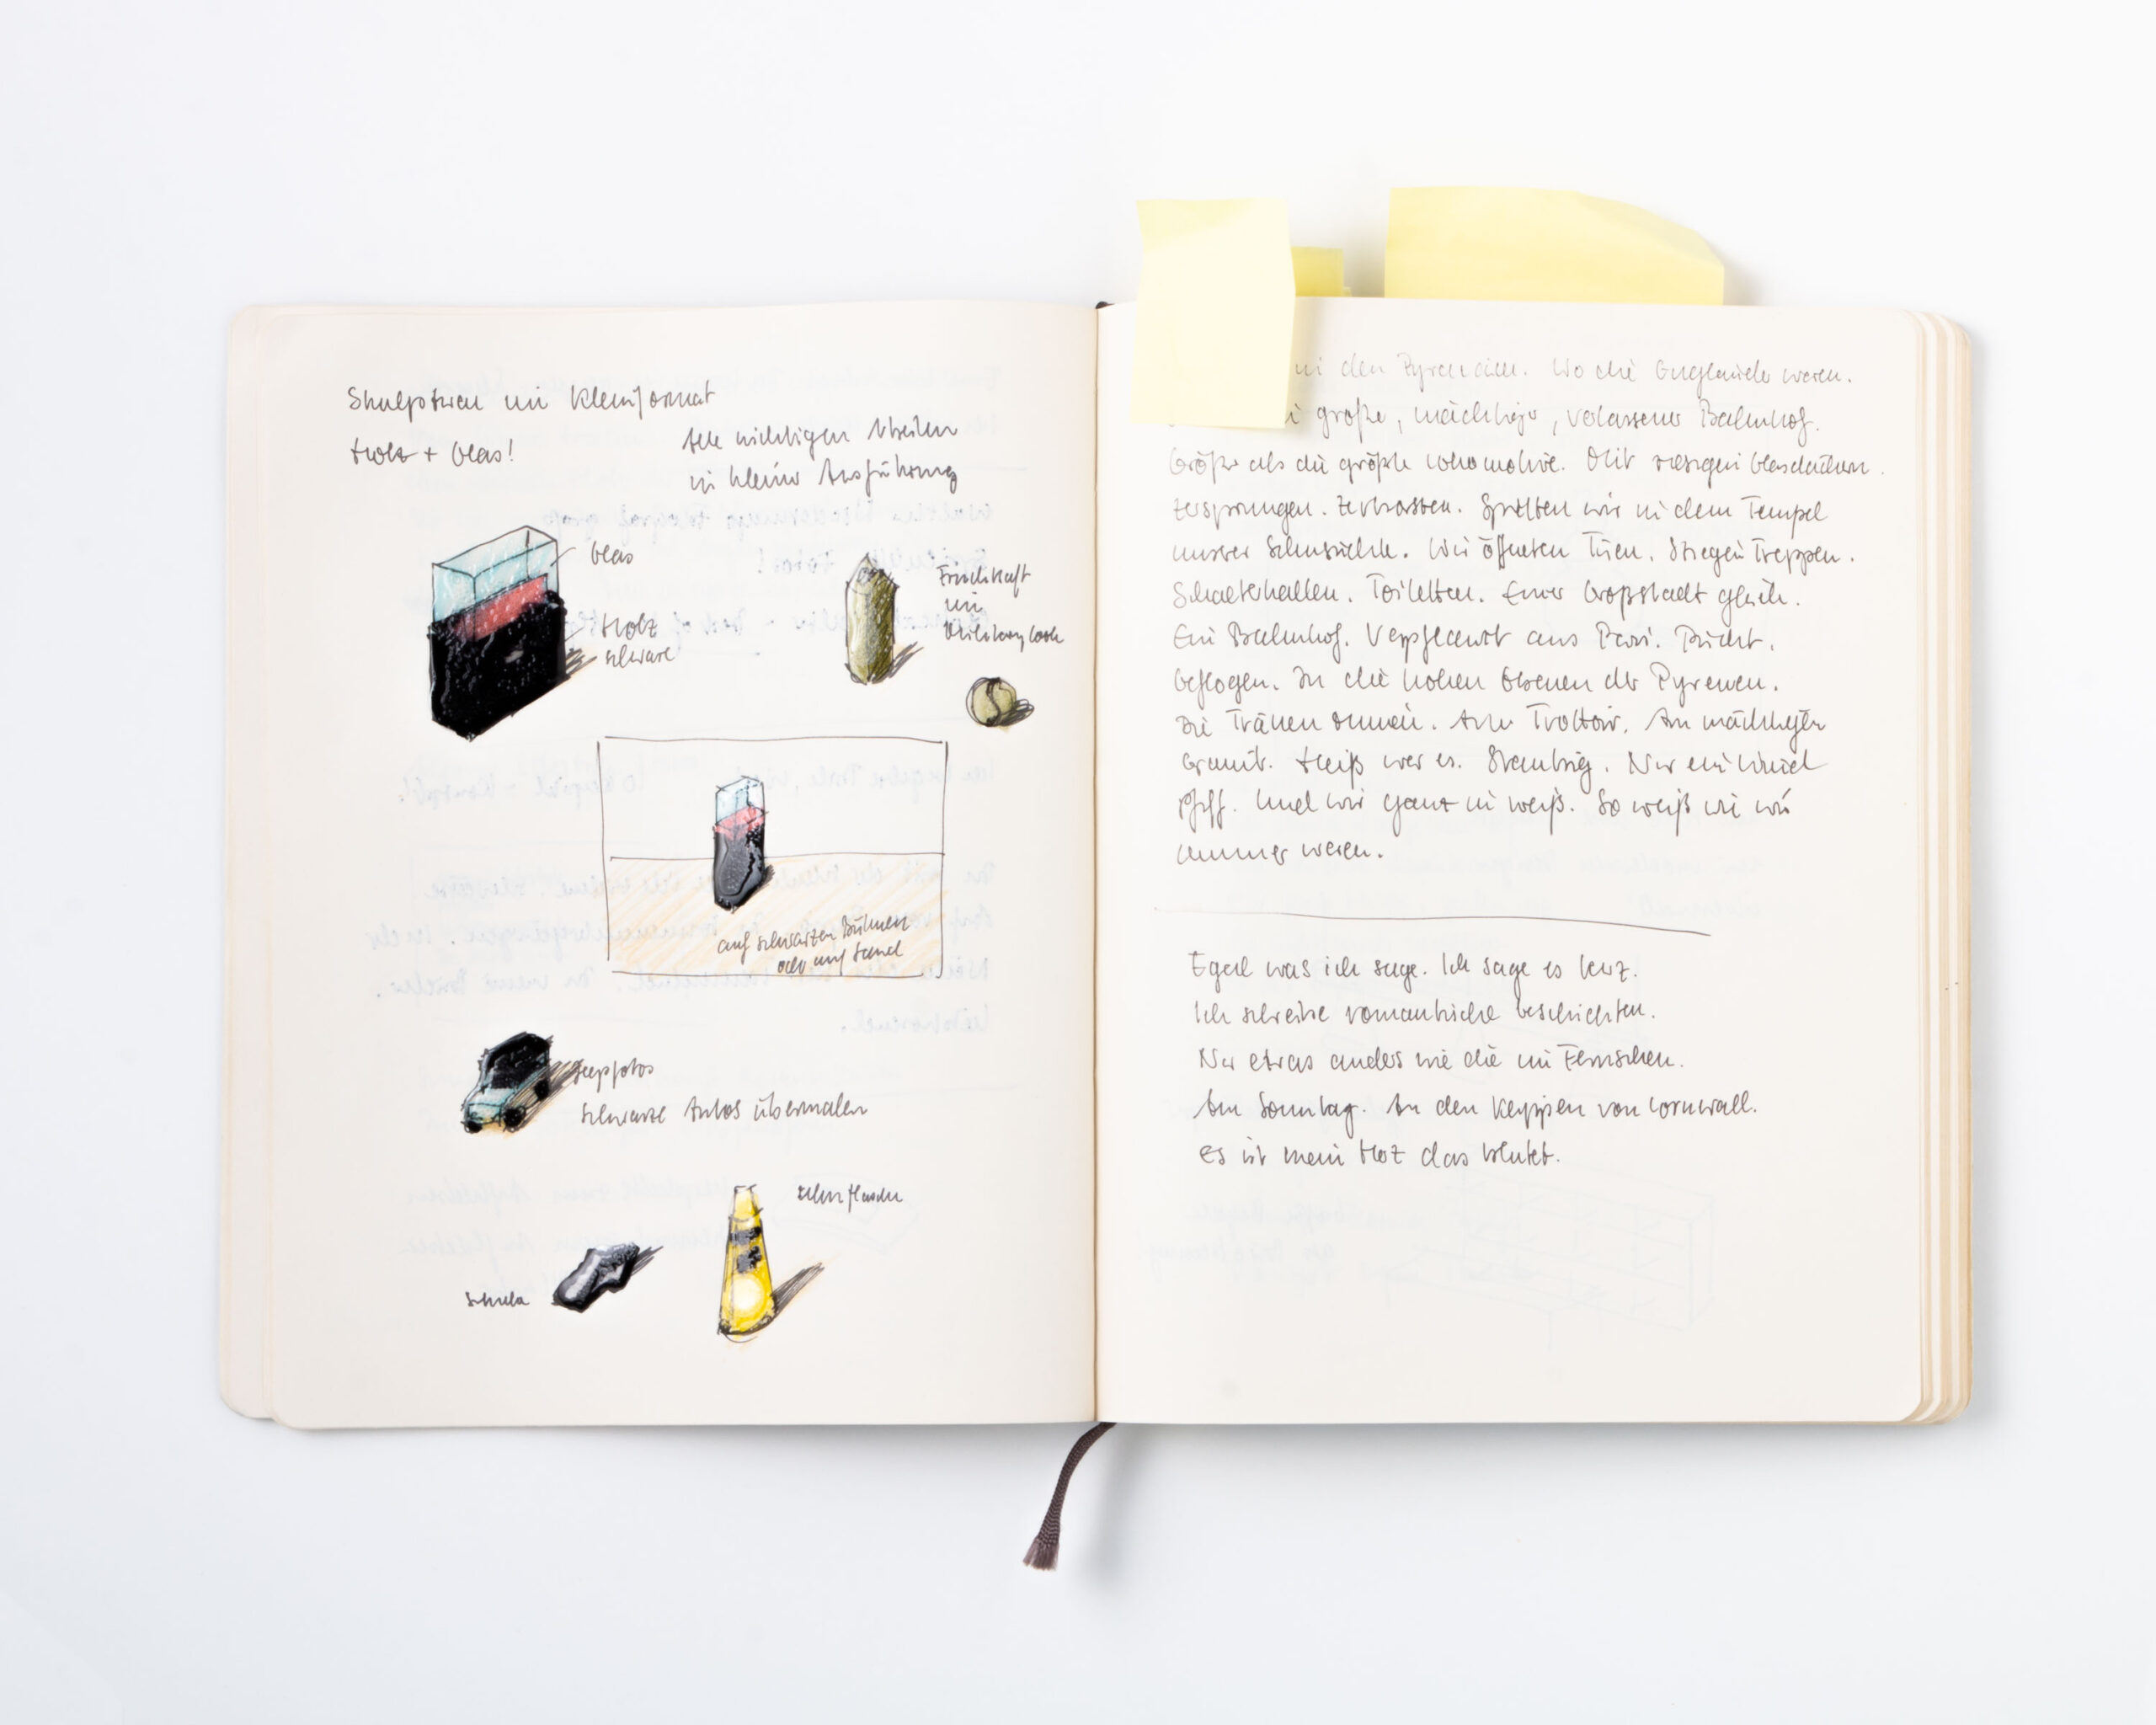 Skulpturen im Kleinformat
Holz + Glas!
Alle wichtigen Arbeiten
in kleiner Ausführung
Glas
Holz
schwarz
Fruchtsaft
im
auf schwarzen Bühnen
oder auf Sand
Jeepfotos
schwarze Autos übermalen
Schuh
in den Pyrenäen. Wo die Engländer waren.
große, mächtige, verlassener Bahnhof.
Größer als die größte Lokomotive. Mit riesigen Glasdächern.
Zersprungen. Zerborsten. Spielten wir in dem Tempel
unserer Sehnsüchte. Wir öffneten Türen. Stiegen Treppen.
Schalterhallen. Toiletten. Einer Großstadt gleich.
Ein Bahnhof. Verpflanzt aus Paris.
Geflogen. In die hohen Ebenen der Pyrenäen.
Die Tränen Am Trottoir. Am mächtigen
Granit. Heiß war es. Staubig. Nur ein Wind
pfiff. Und wir ganz in weiß. So weiß wie wir
immer waren.
Egal was ich sage. Ich sage es kurz.
Ich schreibe romantische Geschichten.
Nur etwas anders wie die im Fernsehen.
Am Sonntag. An den Klippen von Cornwall.
Es ist mein Herz das blutet.